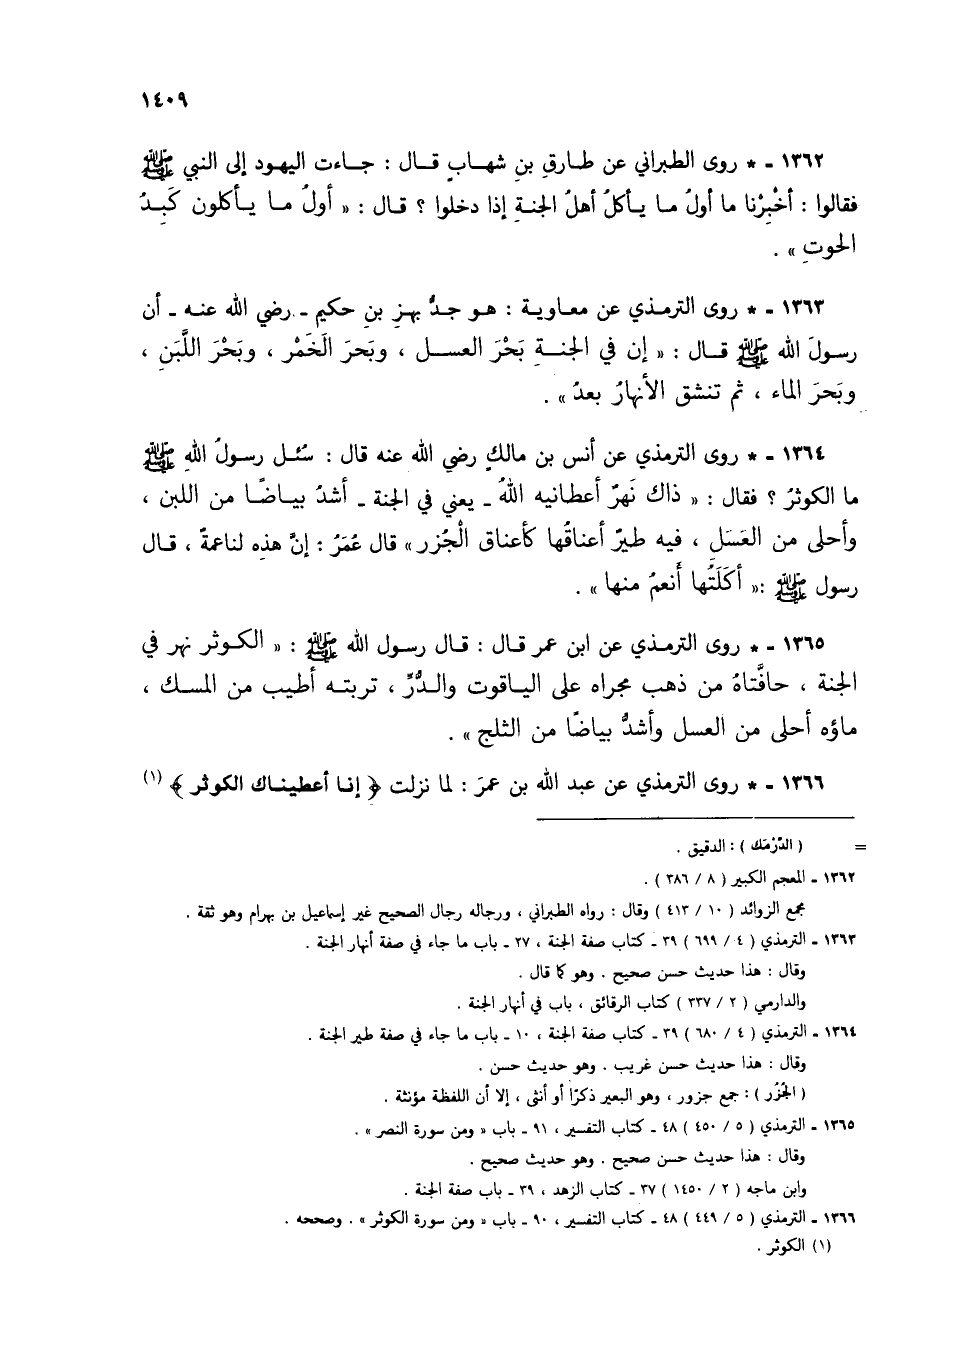 ١٤٠٩
١٣٦٢ - * روى الطبراني عن طارقِ بنِ شهابٍ قال : جاءت اليهود إلى النبي ﷺ
فقالوا : أخْبِرْنا ما أولُ ما يأكلُ أهلُ الجنةِ إذا دخلوا ؟ قال : « أولُ ما يأكلون كَبِدُ
الحوتِ » .
١٣٦٣ - * روى الترمذي عن معاوية : هو جدُّ بهزِ بنِ حكيم - رضي الله عنه - أن
رسولَ الله ﷺ قال : « إن في الجنةِ بَحْرَ العسلِ ، وبَحرَ الخَمْرِ ، وبَحْرَ اللَّبَنِ ،
وبَحرَ الماء ، ثم تنشق الأنهارُ بعدُ » .
١٣٦٤ - * روى الترمذي عن أنس بن مالكٍ رضي الله عنه قال : سُئل رسولُ اللهِ ﷺ
ما الكوثرُ ؟ فقال : « ذاك نَهرٌ أعطانيه اللهُ - يعني في الجنة - أشدُ بياضًا من اللبن ،
وأحلى من العَسَلِ ، فيه طيرٌ أعناقُها كأعناق الْجُزر » قال عُمَرُ : إنَّ هذه لناعمةٌ ، قال
رسول ﷺ :« أكَلَتُها أَنعمُ منها » .
١٣٦٥ - * روى الترمذي عن ابن عمر قال : قال رسول الله ﷺ : « الكوثر نهر في
الجنة ، حافَّتاهُ من ذهب مجراه على الياقوت والدُّرِّ ، تربته أطيب من المسك ،
ماؤه أحلى من العسل وأشدُّ بياضًا من الثلج » .
١٣٦٦ - * روى الترمذي عن عبد الله بن عمرَ : لما نزلت ﴿ إنا أعطيناك الكوثر ﴾ (١)
= ( الدَّرْمَك ) : الدقيق .
١٣٦٢ - المعجم الكبير ( ٨ / ٣٨٦ ) .
مجمع الزوائد ( ١٠ / ٤١٣ ) وقال : رواه الطبراني ، ورجاله رجال الصحيح غير إسماعيل بن بهرام وهو ثقة .
١٣٦٣ - الترمذي ( ٤ / ٦٩٩ ) ٣٩ - كتاب صفة الجنة ، ٢٧ - باب ما جاء في صفة أنهار الجنة .
وقال : هذا حديث حسن صحيح . وهو كما قال .
والدارمي ( ٢ / ٣٣٧ ) كتاب الرقائق ، باب في أنهار الجنة .
١٣٦٤ - الترمذي ( ٤ / ٦٨٠ ) ٣٩ - كتاب صفة الجنة ، ١٠ - باب ما جاء في صفة طير الجنة .
وقال : هذا حديث حسن غريب . وهو حديث حسن .
( الجُزُر ) : جمع جزور ، وهو البعير ذكرًا أو أنثى ، إلا أن اللفظة مؤنثة .
١٣٦٥ - الترمذي ( ٥ / ٤٥٠ ) ٤٨ - كتاب التفسير ، ٩١ - باب « ومن سورة النصر » .
وقال : هذا حديث حسن صحيح . وهو حديث صحيح .
وابن ماجه ( ٢ / ١٤٥٠ ) ٣٧ - كتاب الزهد ، ٣٩ - باب صفة الجنة .
١٣٦٦ - الترمذي ( ٥ / ٤٤٩ ) ٤٨ - كتاب التفسير ، ٩٠ - باب « ومن سورة الكوثر » . وصححه .
(١) الكوثر .